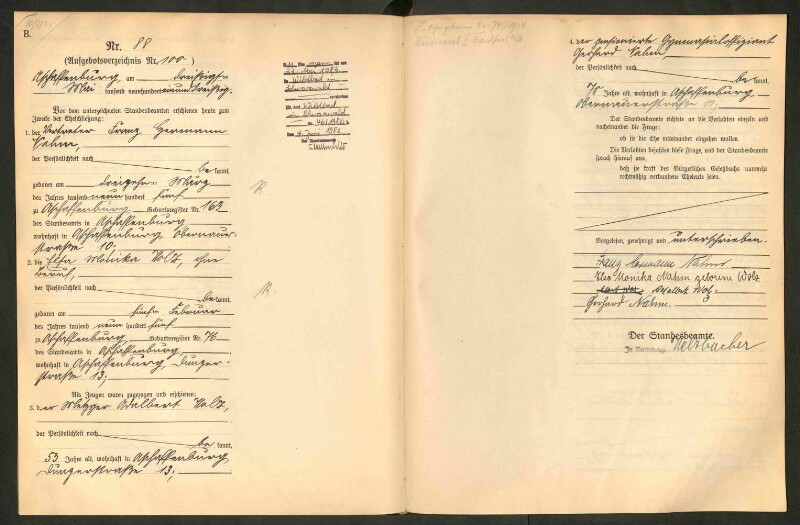 B.
Nr. 88
(Aufgebotsverzeichnis Nr. 100)
Aschaffenburg am dreißigsten
Mai tausend neunhundert neunundzwanzig.
Vor dem unterzeichneten Standesbeamten erschienen heute zum
Zwecke der Eheschließung:
1. der Vertreter Franz Hermann
Nahm,
der Persönlichkeit nach
bekannt,
geboren am dreizehnten März
des Jahres tausend neunhundert fünf
zu Aschaffenburg Geburtsregister Nr. 163
des Standesamts in Aschaffenburg
wohnhaft in Aschaffenburg Obernauer-
straße 10;
2. die Elsa Monika Volz, ohne
Beruf,
der Persönlichkeit nach
bekannt,
geboren am fünften Februar
des Jahres tausend neunhundert fünf
zu Aschaffenburg Geburtsregister Nr. 76
des Standesamts in Aschaffenburg,
wohnhaft in Aschaffenburg, Dunger-
straße 13;
Als Zeugen waren zugezogen und erschienen:
3. der Metzger Adalbert Volz,
der Persönlichkeit nach
bekannt,
53 Jahre alt, wohnhaft in Aschaffenburg
Dungerstraße 13;
Mai 1982
Wildbad
im Schwarzwald
verstorben
Wildbad
im Schwarzwald
4. Juni 1982
Der Standesbeamte
4. der pensionierte Gymnasialoffiziant
Gerhard Nahm,
der Persönlichkeit nach
bekannt,
78 Jahre alt, wohnhaft in Aschaffenburg
Obernauerstraße 10;
Der Standesbeamte richtete an die Verlobten einzeln und
nacheinander die Frage:
ob sie die Ehe miteinander eingehen wollen.
Die Verlobten bejahten diese Frage, und der Standesbeamte
sprach hierauf aus,
daß sie kraft des Bürgerlichen Gesetzbuchs nunmehr
rechtmäßig verbundene Eheleute seien.
Vorgelesen, genehmigt und unterschrieben.
Franz Hermann Nahm
Elsa Monika Nahm geborene Volz
Adalbert Volz
Gerhard Nahm.
Der Standesbeamte.
In Vertretung: Welzbacher